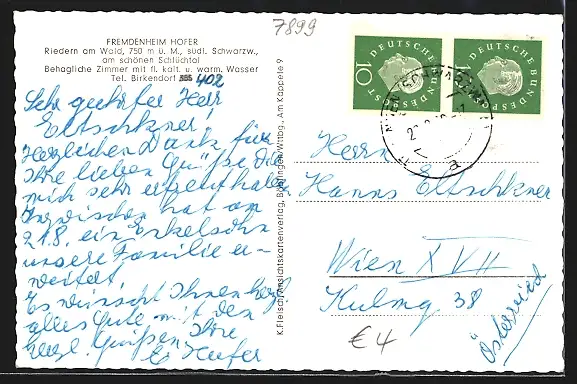 7899
FREMDENHEIM HOFER
Riedern am Wald, 750 m ü. M., südl. Schwarzw.,
am schönen Schlüchtal
Behagliche Zimmer mit fl. kalt. u. warm. Wasser
Tel. Birkendorf 402
Sehr geehrter Herr
Eltschkner!
Herzlichen Dank für
Ihre lieben Grüße die
mich sehr erfreut haben
Inzwischen hat am
21.8. ein Enkelsohn
unsere Familie er-
weitert.
Es wünscht Ihnen
alles Gute mit den
herzl. Grüßen Ihre
E. Hofer
K.Fleisch, Ansichtskartenverlag, Am Käppele 9
DEUTSCHE BUNDESPOST
10
DEUTSCHE BUNDESPOST
a
Herrn
Hanns Eltschkner
Wien XVII
Kulmg 38
Österreich
€4